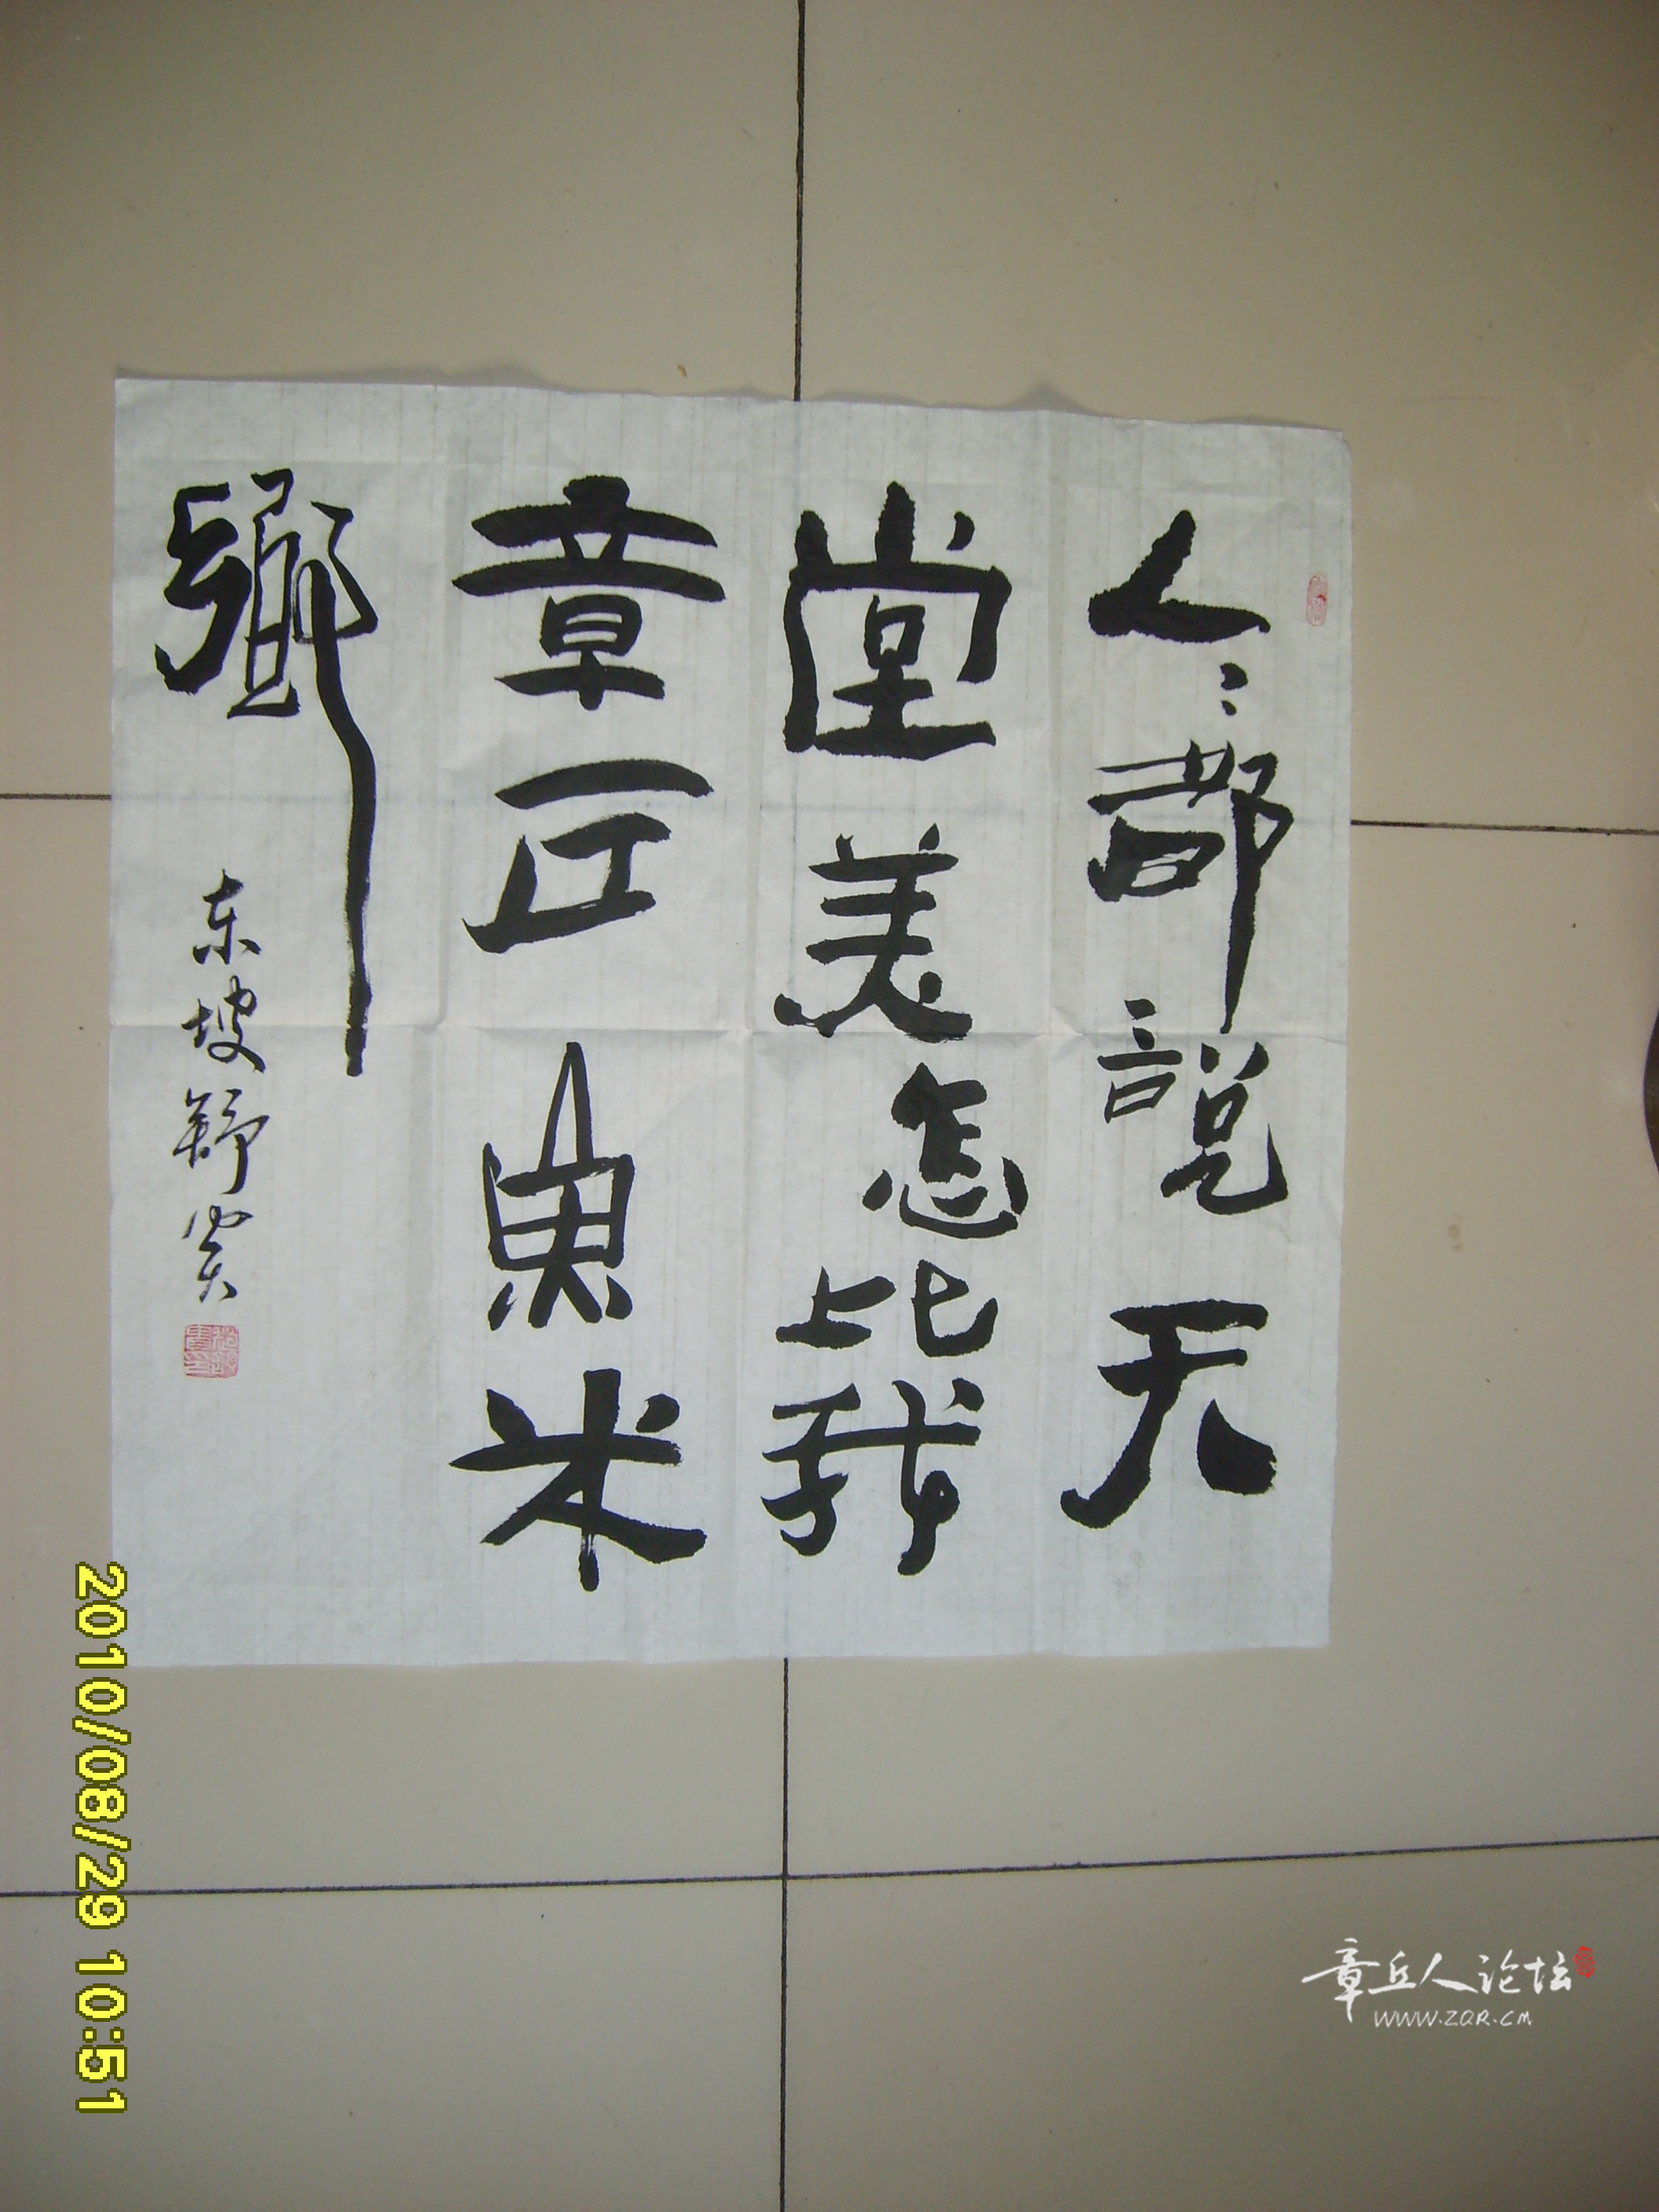 人々都說天
堂美怎比我
章丘魚米
鄉
东坡舒奕
2010/08/29 10:51
章丘人论坛
WWW.ZQR.CM